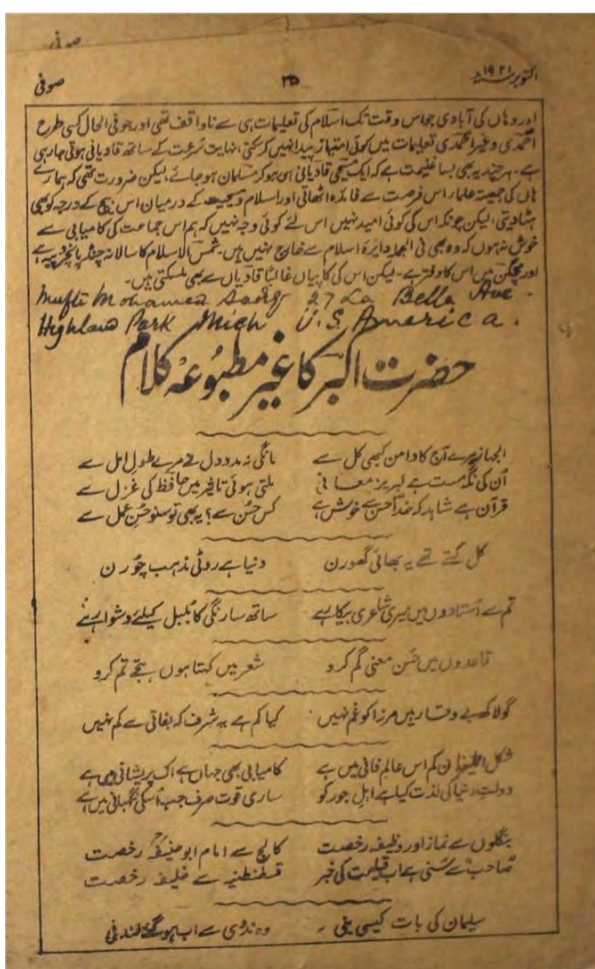 صوفی
اکتوبر ۱۹۲۱ ۳۵ صوفی
اور وہاں کی آبادی جو اس وقت تک اسلام کی تعلیمات ہی سے ناواقف تھی اور جو فی الحال کسی طرح
احمدی و غیر احمدی تعلیمات میں کوئی امتیاز پیدا نہیں کر سکتی، نہایت سرعت کے ساتھ قادیانی ہوتی جا رہی
ہے۔ ہر چند یہ بھی بسا غنیمت ہے کہ ایک مسیحی قادیانی ہی ہو کر مسلمان ہو جائے، لیکن ضرورت تھی کہ ہمارے
ہاں کی جمعیۃ علماء اس فرصت سے فائدہ اٹھاتی اور اسلام و مسیحیت کے درمیان اس بیچ کے درجہ کو بھی
ہٹا دیتی، لیکن چونکہ اس کی کوئی امید نہیں اس لئے کوئی وجہ نہیں کہ ہم اس جماعت کی کامیابی سے
خوش نہ ہوں کہ وہ بھی فی الجملہ دائرۂ اسلام سے خارج نہیں ہیں۔ شمس الاسلام کا سالانہ چندہ پانچ روپیہ ہے
اور میں اس کا دفتر ہے۔ لیکن اس کی کاپیاں غالباً قادیاں سے بھی مل سکتی ہیں۔
Mufti Mohamed Sadiq 27 La Bella Ave.
Highland Park Mich U.S. America.
حضرت اکبر کا غیر مطبوعہ کلام
الجھا نہ مرے آج کا دامن کبھی کل سے مانگی نہ مدد دل نے مرے طول امل سے
اُن کی نگہ مست ہے لبریز معانی ملتی ہوئی تاثیر میں حافظ کی غزل سے
قرآن ہے شاہد کہ خدا حسن سے خوش ہے کس حسن سے؟ یہ بھی تو سنو حسن عمل سے
کل کہتے تھے یہ بھائی گھورن دنیا ہے روٹی مذہب چورن
تم سے اُستادوں میں میری شاعری بیکار ہے ساتھ سارنگی کا بُلبل کیلئے دشوار ہے
قاعدوں میں حسن معنی گم کرو شعر میں کہتا ہوں ہجے تم کرو
گو لاکھ بے وقار ہیں مرزا کو غم نہیں کیا کم ہے یہ شرف کہ بغاتی سے کم نہیں
شکل اطمینان کم اس عالم فانی میں ہے کامیابی بھی جہاں ہے اک پریشانی میں ہے
دولت دنیا کی لذت کیا ہے اہل جور کو ساری قوت صرف جب اُسکی نگہبانی میں ہے
بنگلوں سے نماز اور وظیفہ رخصت کالج سے امام ابو حنیفہ رخصت
صاحب سے سنی ہے اب قیامت کی خبر قسطنطنیہ سے خلیفہ رخصت
سلیمان کی بات کیسی بنی وہ ندوی سے اب ہو گئے لندنی